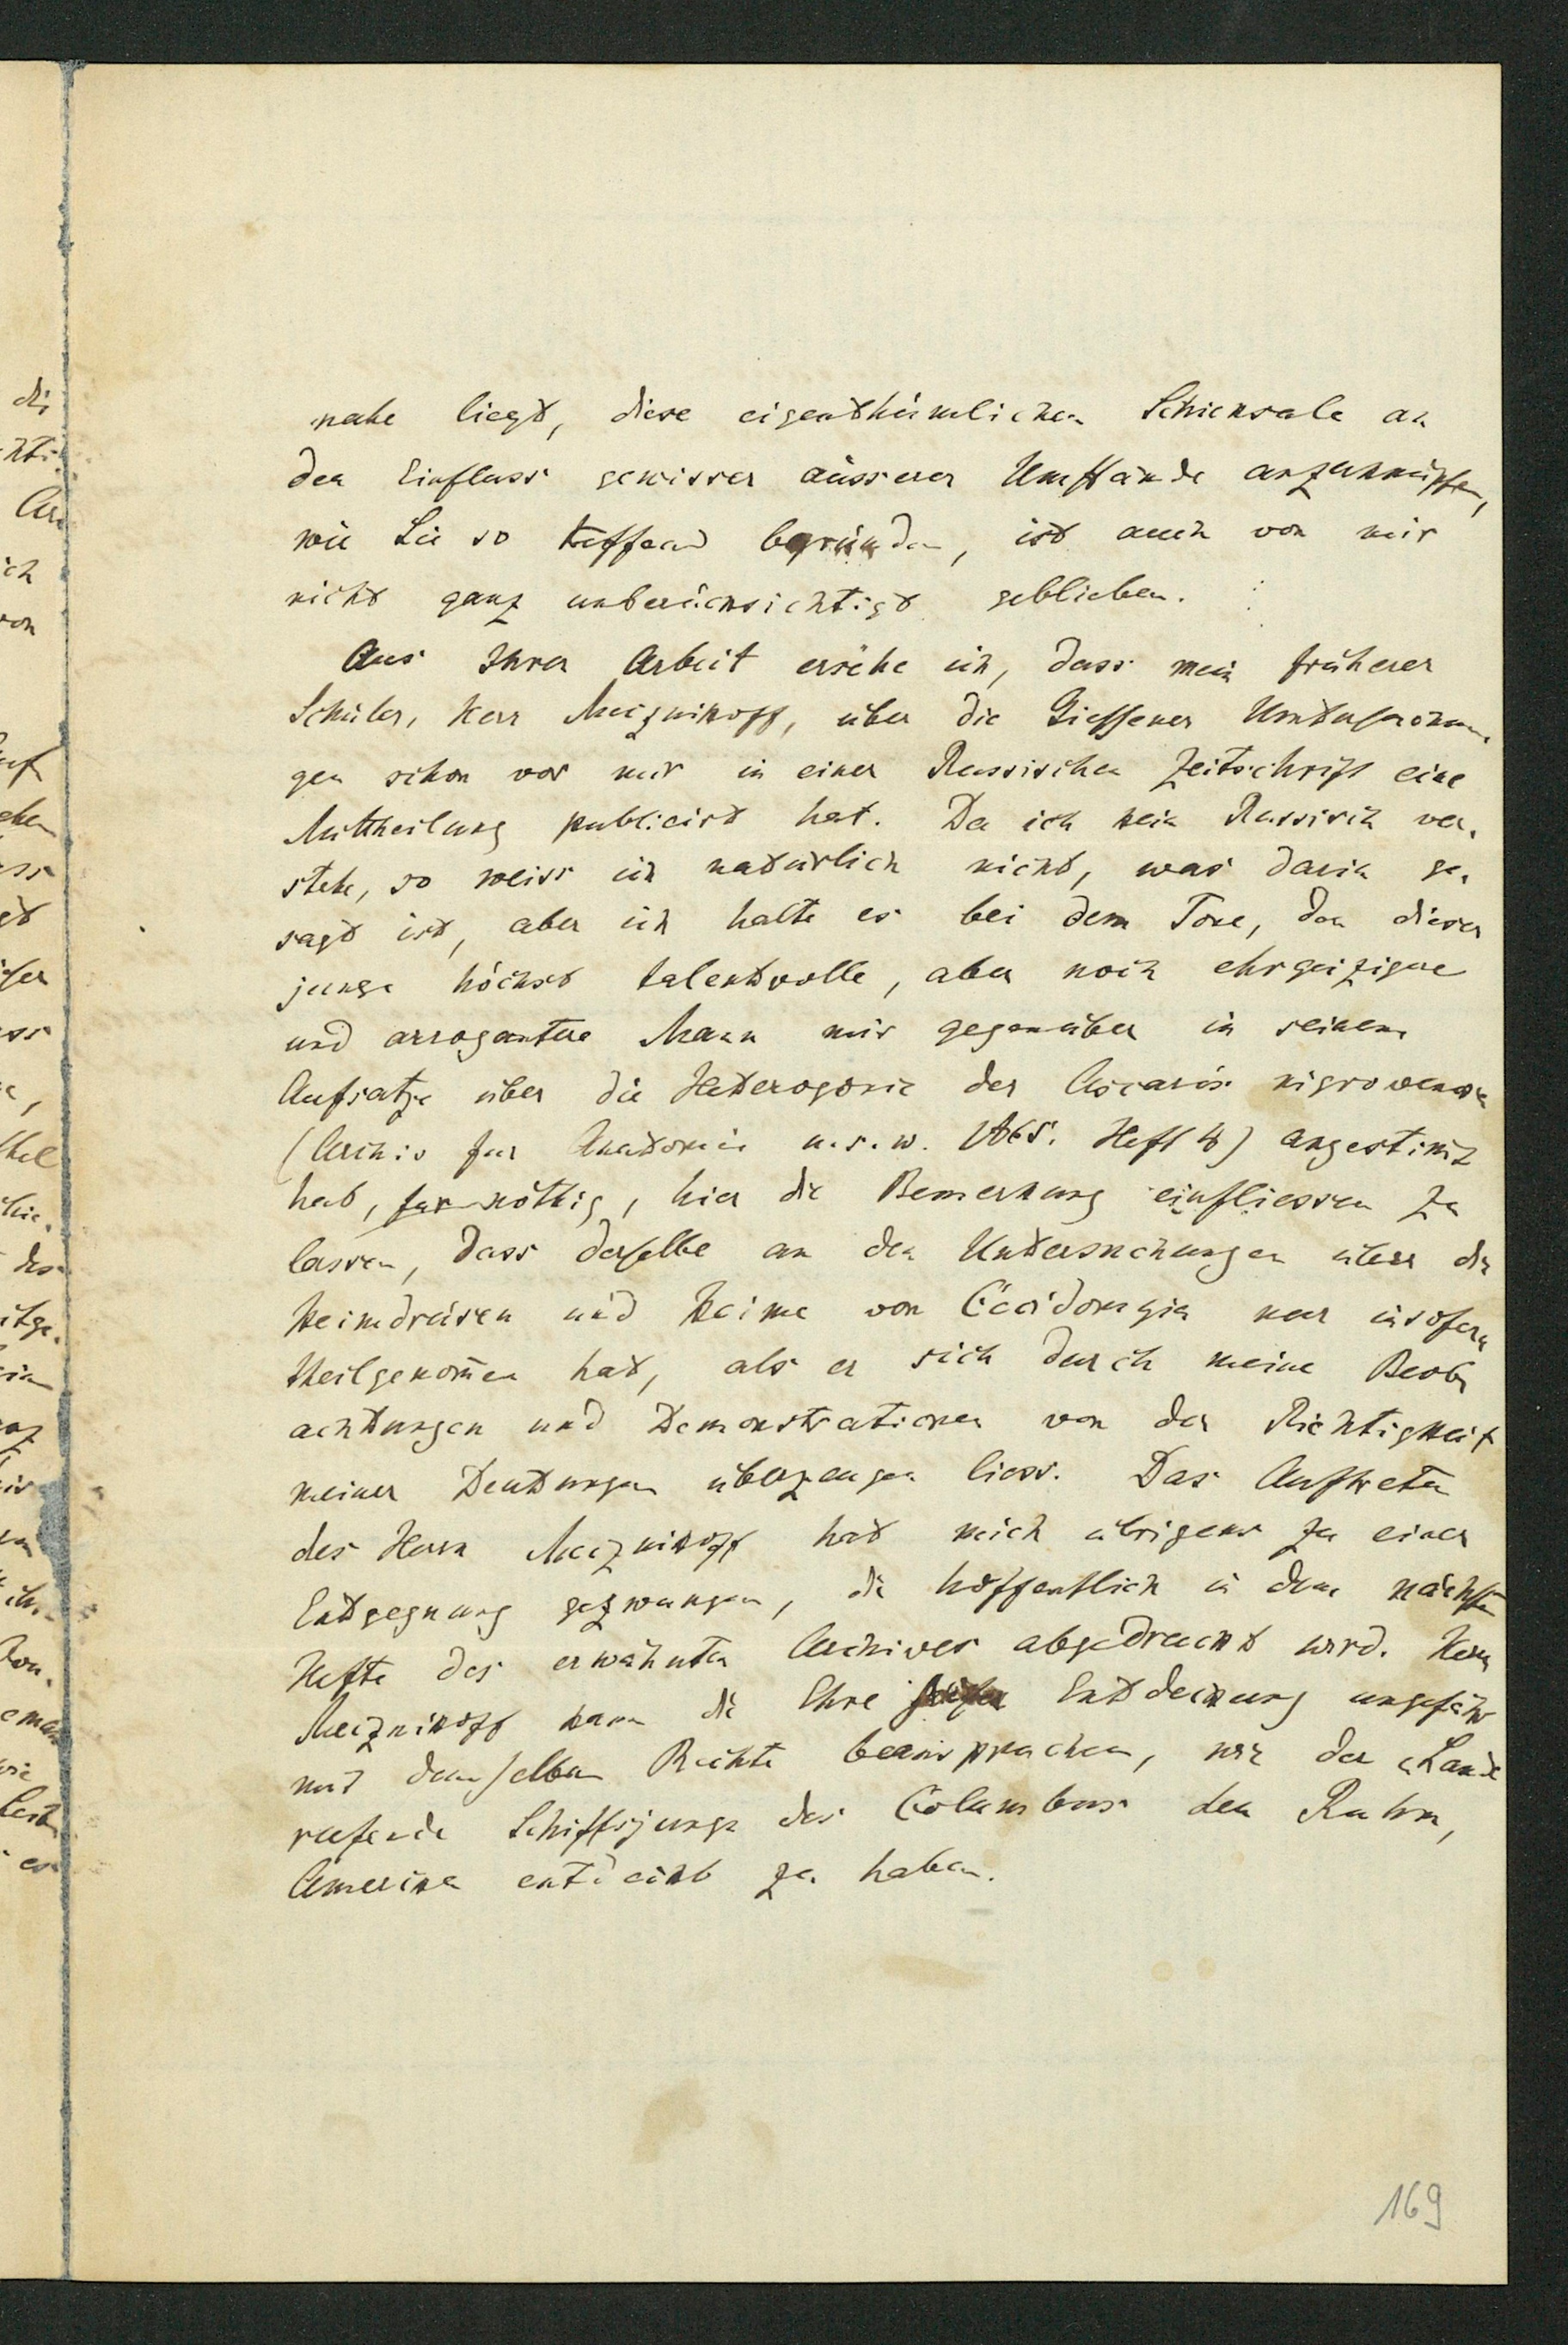 nahe liegt, diese eigenthümlichen Schicksale an
den Einfluss gewisser äusserer Umstände anzuknüpfen,
wie Sie so treffend begründen, ist auch von mir
nicht ganz unberücksichtigt geblieben.
Aus Ihrer Arbeit ersehe ich, dass mein früherer
Schüler, Herr Mecznikoff, über die Giessener
gen schon vor mir in einer Russischen Zeitschrift eine
Mittheilung publicirt hat. Da ich kein Russisch ver-
stehe, so weiss ich natürlich nicht, was darin ge-
sagt ist, aber ich halte es bei dem Tone, den dieser
junge höchst talentvolle, aber noch ehrgeizigere
und arrogantere Mann mir gegenüber in seinem
Aufsatze über die Heterogonie der Ascaris nigrovenosa
(Archiv für Anatomie u.s.w. 1865. Heft 4) angestimt
hat, für nöthig, hier die Bemerkung einfliessen zu
lassen, dass derselbe an den Untersuchungen über die
Keimdrüsen und Keime von Cecidomyia nur insofern
theilgenom̄en hat, als er sich durch meine Beob
achtungen und Demonstrationen von der Richtigkeit
meiner Deutungen überzeugen liess. Das Auftreten
des Herrn Mecznikoff hat mich übrigens zu einer
Entgegnung gezwungen, die hoffentlich in dem nächsten
Hefte des erwähnten Archives abgedruckt wird. Herr
Mecznikoff kann die Ehre Entdeckung ungefähr
mit demselben Rechte beanspruchen, wie der „Land“
rufende Schiffsjunge des Columbus den Ruhm,
America entdeckt zu haben.
169
di
chti
ich
von
ehen
ss
des
itge-
ein
es